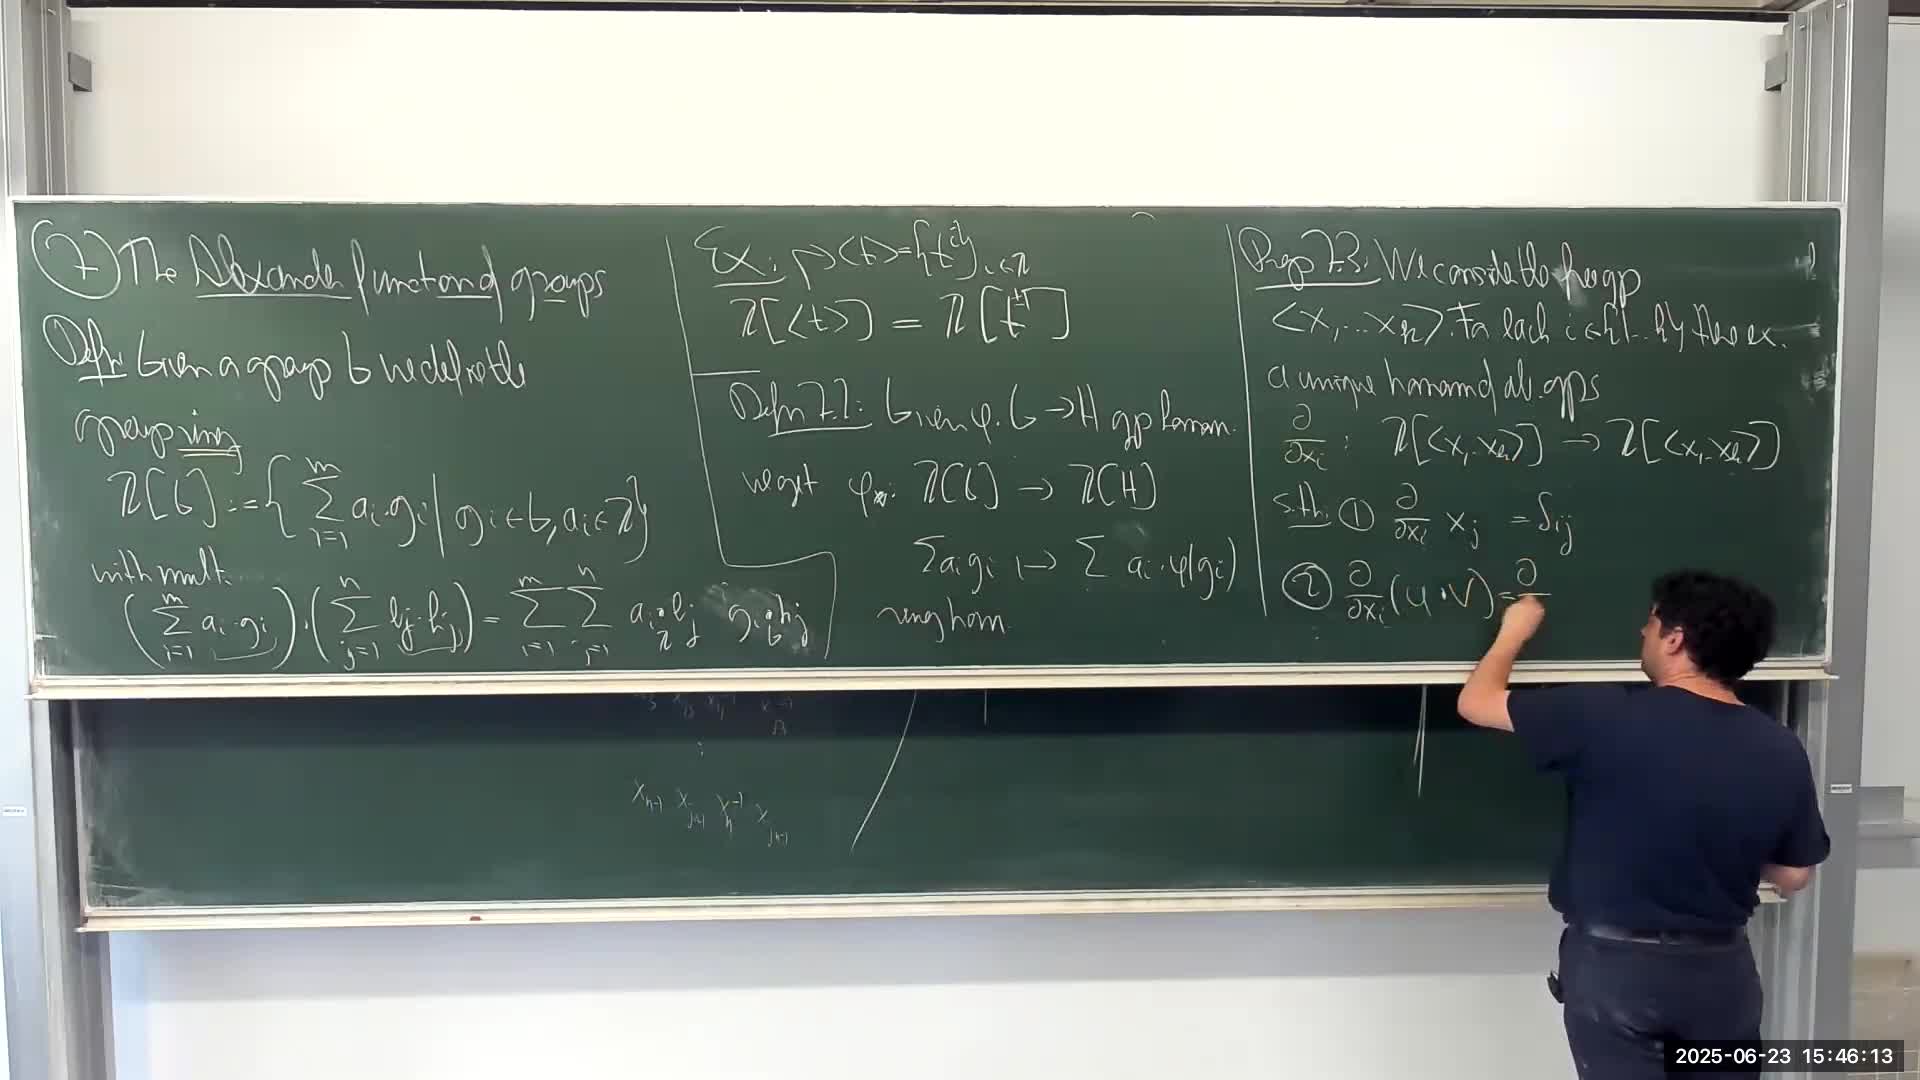 ⑦ The Alexander function of groups
Defn: Given a group G we define the
group ring
ℤ[G] := { ∑_{i=1}^{m} a_i · g_i | g_i ∈ G, a_i ∈ ℤ }
with mult.
(∑_{i=1}^{m} a_i · g_i) · (∑_{j=1}^{n} b_j · h_j) = ∑_{i=1}^{m} ∑_{j=1}^{n} a_i ·_ℤ b_j g_i ·_G h_j
Ex: <t> = {t^i}_{i∈ℤ}
ℤ[<t>] = ℤ[t^{±1}]
Defn 7.2: Given φ: G → H gp homom.
we get φ_*: ℤ[G] → ℤ[H]
∑ a_i g_i ↦ ∑ a_i · φ(g_i)
ring hom.
Prop 7.3: We consider the free gp
<x_1 ... x_k>. For each i ∈ {1...k} there ex.
a unique homom of ab. gps
∂/∂x_i : ℤ[<x_1..x_k>] → ℤ[<x_1..x_k>]
s.th. ① ∂/∂x_i x_j = δ_ij
② ∂/∂x_i (u · v) = ∂
x_{n-1} x_{j_{n-1}} x_n^{-1} x_{j_{n-1}}
2025-06-23 15:46:13